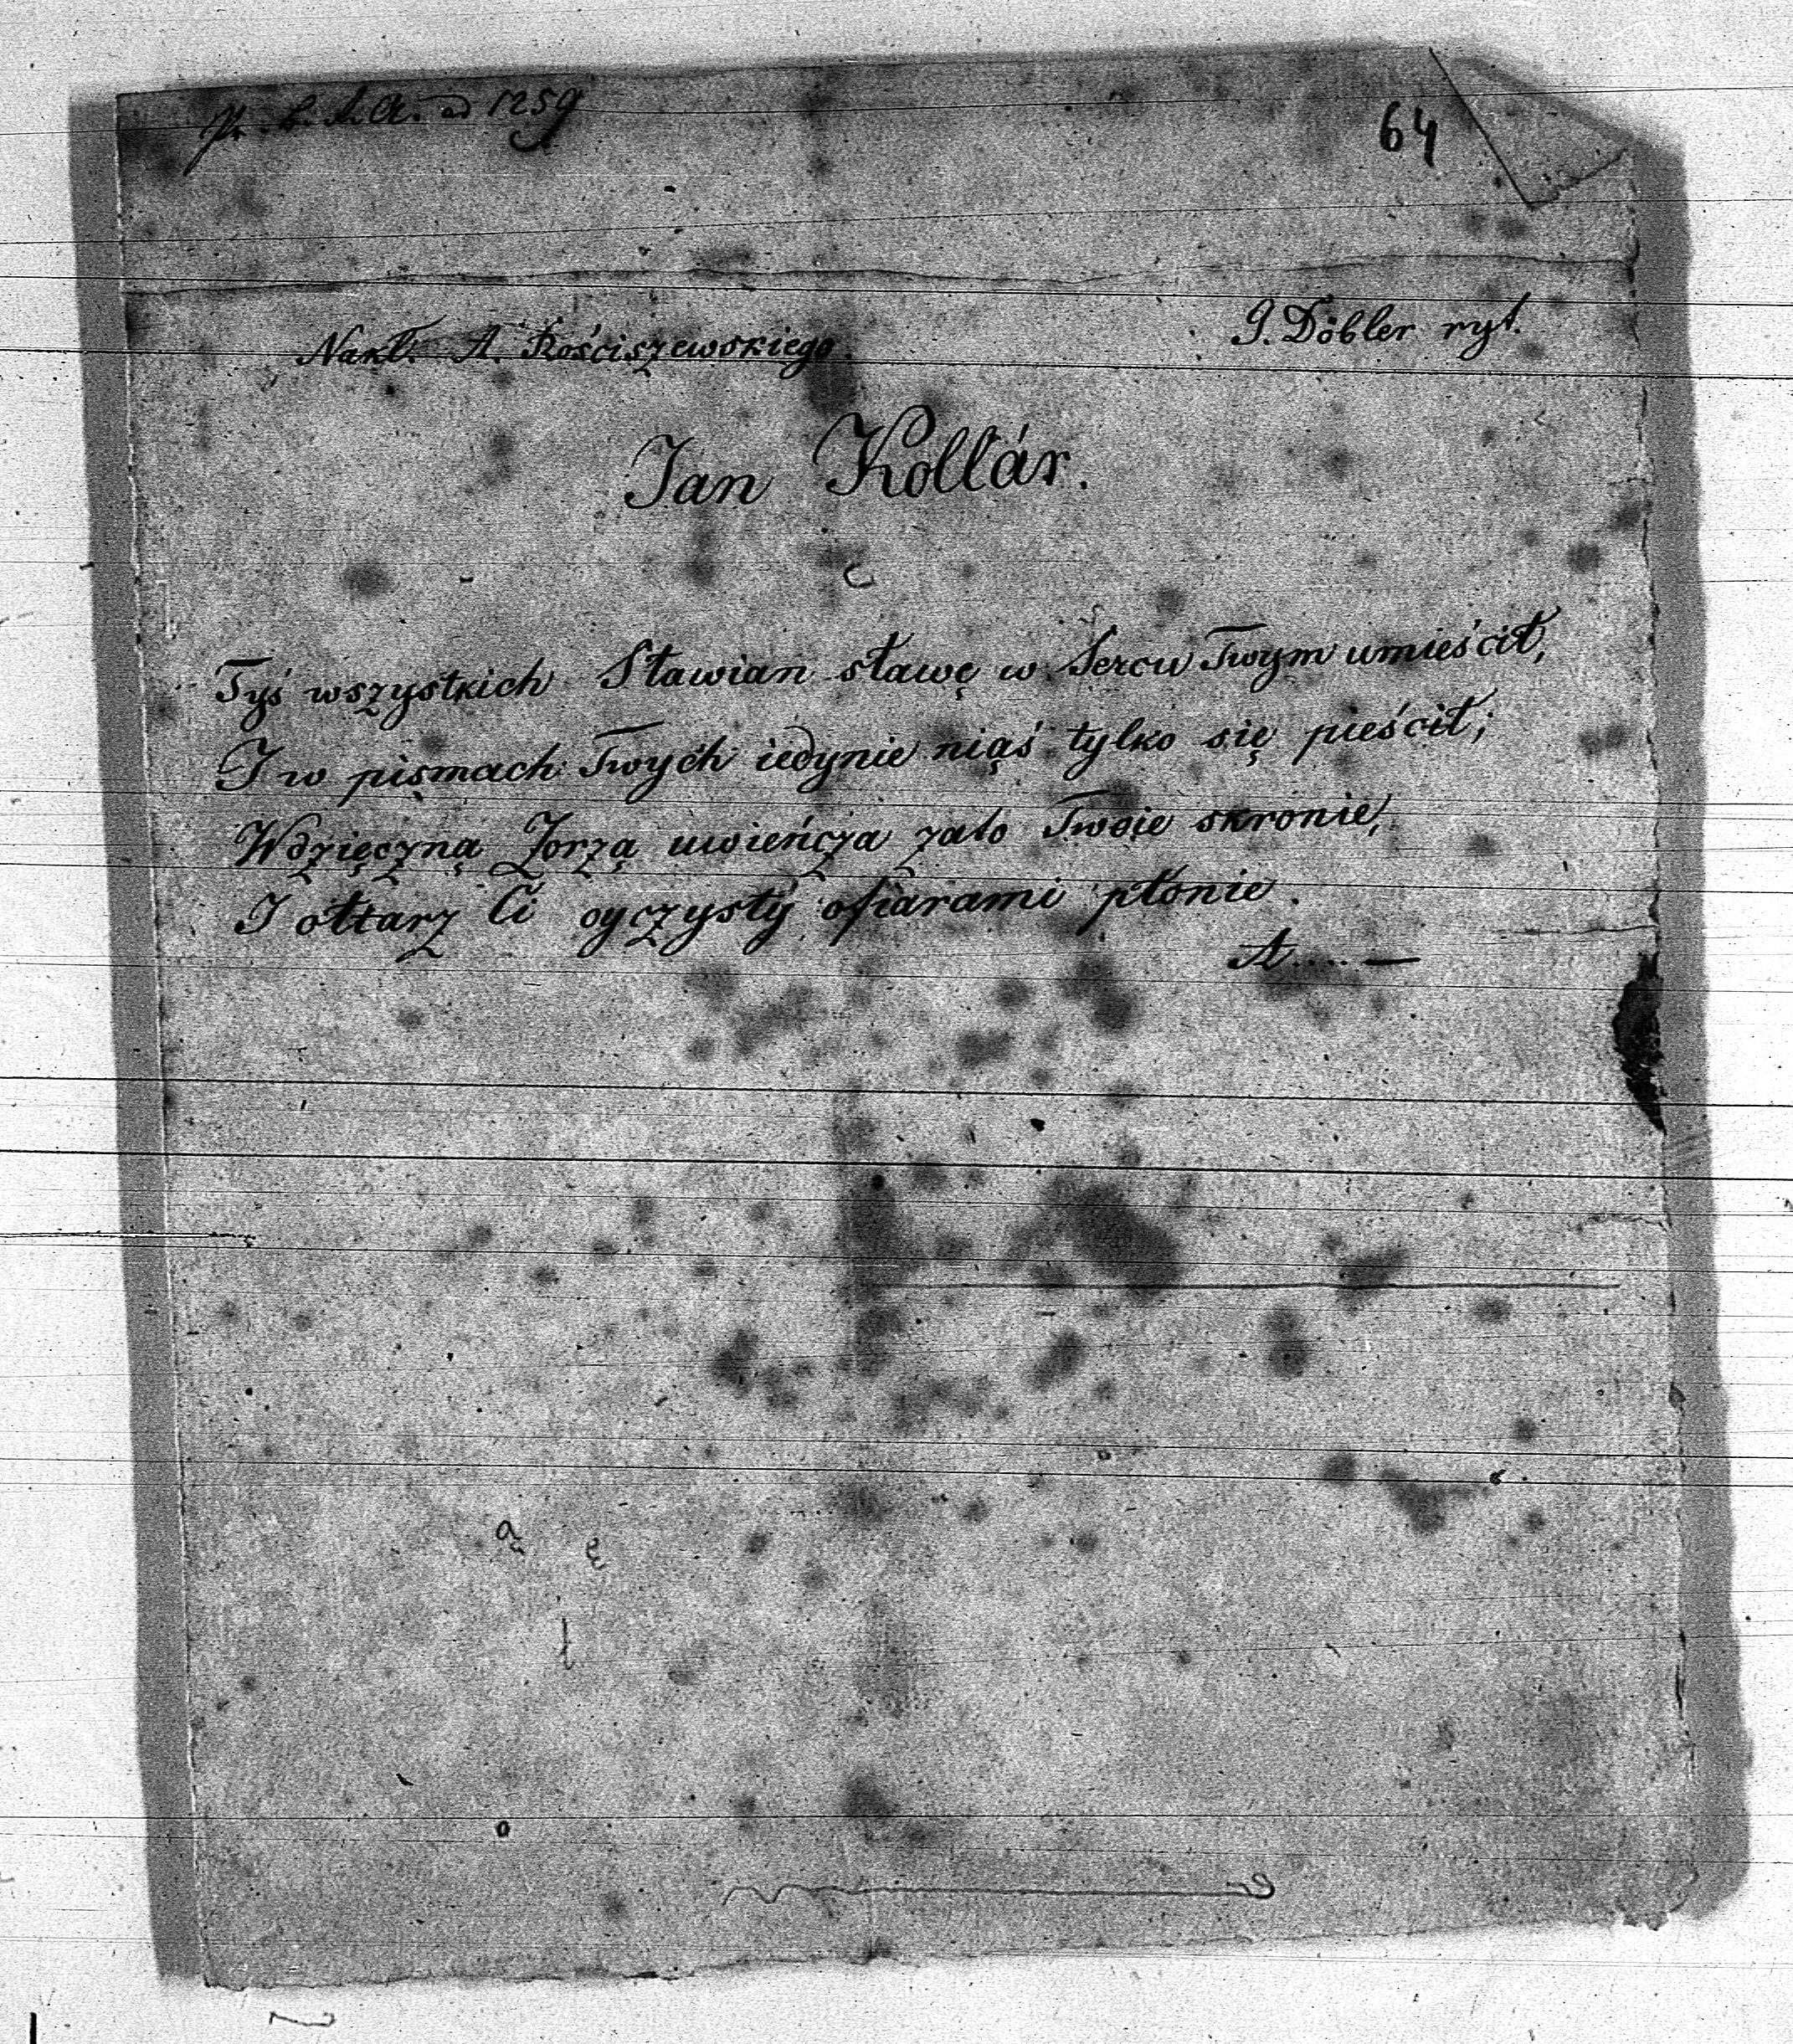 ad 1259
64
Nakł. A. Rościszewskiego.
J. Döbler ryt.
Jan Kollár.
Tyś wszystkich Sławian sławę w Sercu Twym umieścił,
I w pismach Twych iedynie niąś tylko się pieścił;
Wdzięczną Zorzą uwieńcza zato Twoie skronie,
I ołtarz Ci oyczysty ofiarami płonie.
A..... —